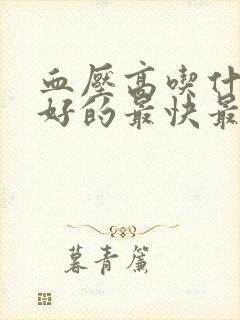 血壓高喫什
好的最快最
暮青簾